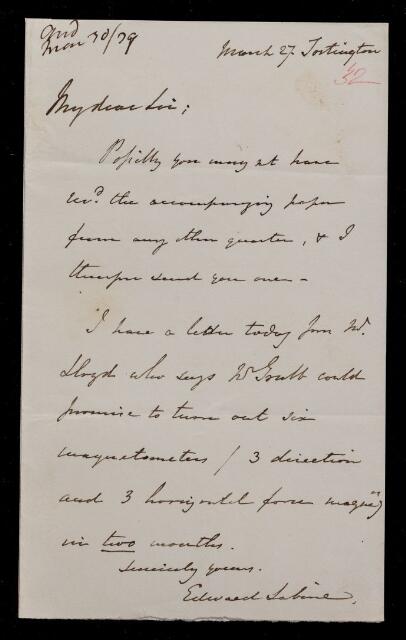 and
Mar 30/39
March 27 Tortington
32
My dear Sir;
Possibly you may not have
recd. the accompanying paper
from any other quarter, & I
therefore send you one –
I have a letter today from Mr.
Lloyd who says Mr Grubb could
promise to turn out six
magnetometers / 3 direction
and 3 horizontal force magns)
in two months.
Sincerely yours.
Edward Sabine.